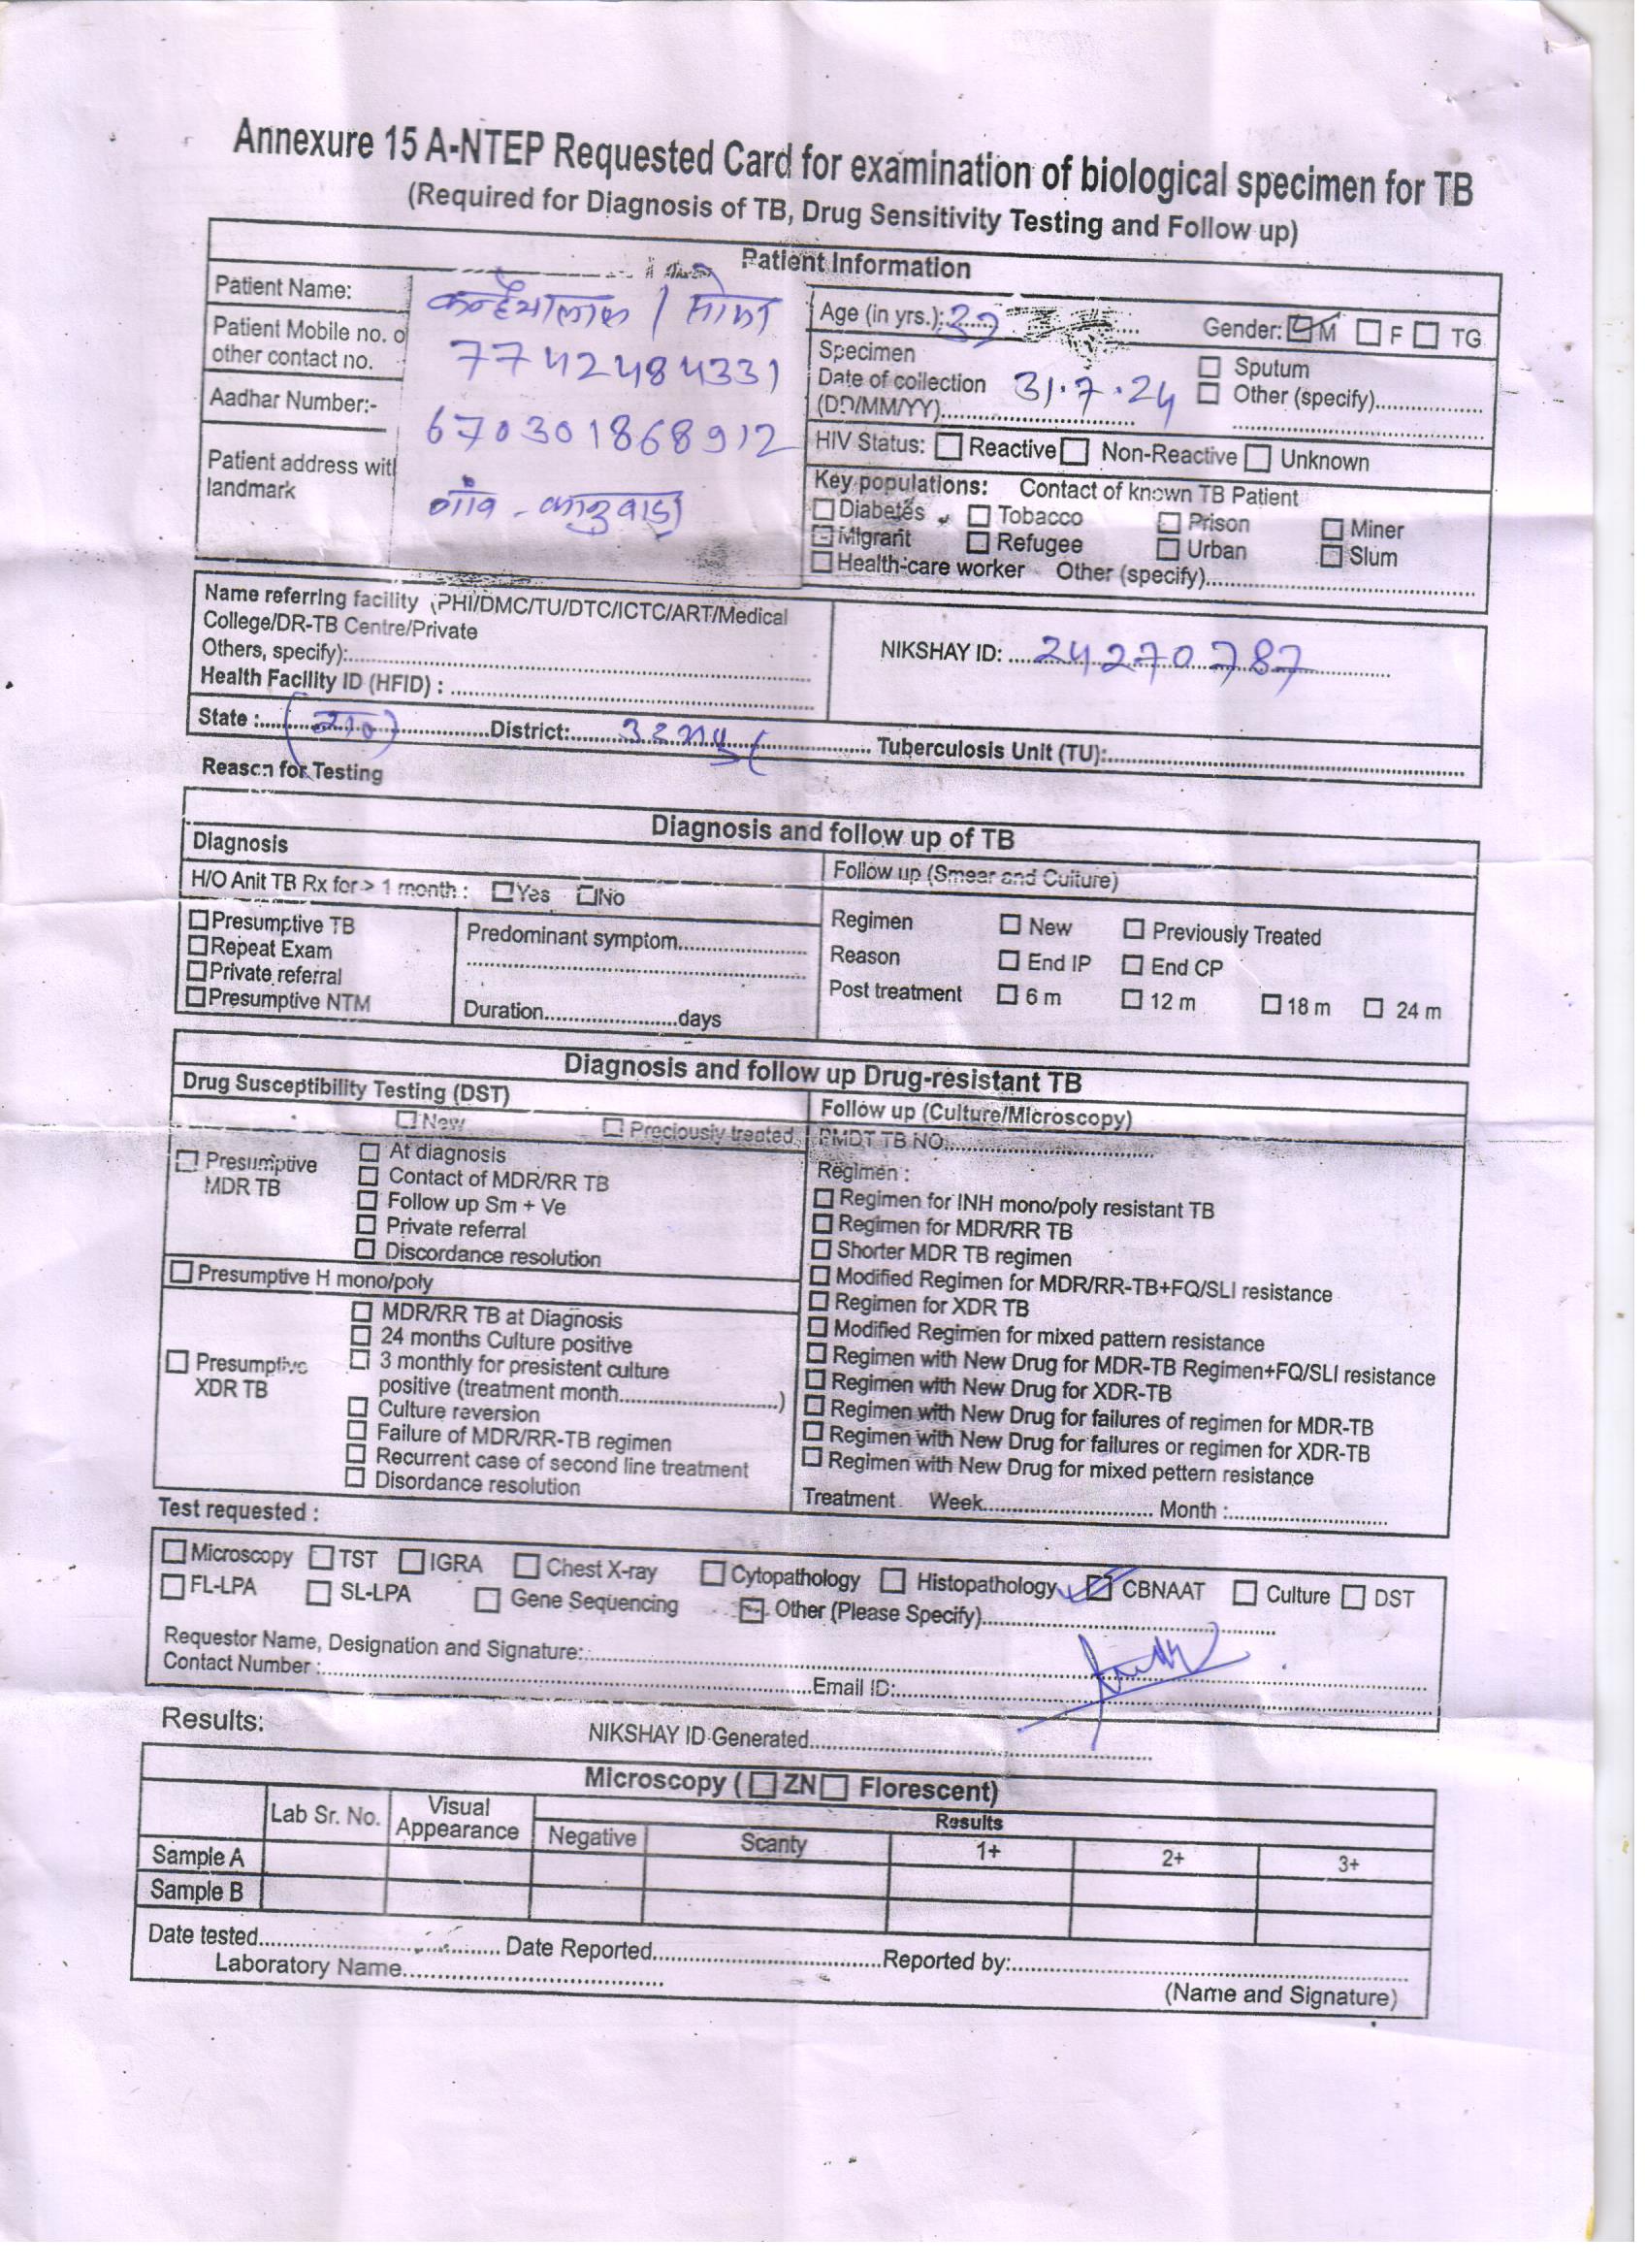 Annexure 15 A-NTEP Requested Card for examination of biological specimen for TB
(Required for Diagnosis of TB, Drug Sensitivity Testing and Follow up)
Patient Information
Patient Name: कन्हैयालाल /
Patient Mobile no. o
other contact no. 7742484331
Aadhar Number:- 670301868912
Patient address with
landmark गाँव - कानुवाड़ा
Age (in yrs.): 32 Gender: ☑ M ☐ F ☐ TG
Specimen
Date of collection 31.7.24
(DD/MM/YY)
☐ Sputum
☐ Other (specify)
HIV Status: ☐ Reactive ☐ Non-Reactive ☐ Unknown
Key populations: Contact of known TB Patient
☐ Diabetes ☐ Tobacco ☐ Prison ☐ Miner
☐ Migrant ☐ Refugee ☐ Urban ☐ Slum
☐ Health-care worker Other (specify)
Name referring facility (PHI/DMC/TU/DTC/ICTC/ART/Medical
College/DR-TB Centre/Private
Others, specify):
Health Facility ID (HFID) :
NIKSHAY ID: 24270787
State : (राज०) District: उदयपुर Tuberculosis Unit (TU):
Reason for Testing
Diagnosis and follow up of TB
Diagnosis
H/O Anit TB Rx for > 1 month : ☐ Yes ☐ No
☐ Presumptive TB
☐ Repeat Exam
☐ Private referral
☐ Presumptive NTM
Predominant symptom
Duration days
Follow up (Smear and Culture)
Regimen ☐ New ☐ Previously Treated
Reason ☐ End IP ☐ End CP
Post treatment ☐ 6 m ☐ 12 m ☐ 18 m ☐ 24 m
Diagnosis and follow up Drug-resistant TB
Drug Susceptibility Testing (DST)
☐ New ☐ Preciously treated
☐ Presumptive
MDR TB
☐ At diagnosis
☐ Contact of MDR/RR TB
☐ Follow up Sm + Ve
☐ Private referral
☐ Discordance resolution
☐ Presumptive H mono/poly
☐ Presumptive
XDR TB
☐ MDR/RR TB at Diagnosis
☐ 24 months Culture positive
☐ 3 monthly for presistent culture
positive (treatment month )
☐ Culture reversion
☐ Failure of MDR/RR-TB regimen
☐ Recurrent case of second line treatment
☐ Disordance resolution
Follow up (Culture/Microscopy)
PMDT TB NO
Regimen :
☐ Regimen for INH mono/poly resistant TB
☐ Regimen for MDR/RR TB
☐ Shorter MDR TB regimen
☐ Modified Regimen for MDR/RR-TB+FQ/SLI resistance
☐ Regimen for XDR TB
☐ Modified Regimen for mixed pattern resistance
☐ Regimen with New Drug for MDR-TB Regimen+FQ/SLI resistance
☐ Regimen with New Drug for XDR-TB
☐ Regimen with New Drug for failures of regimen for MDR-TB
☐ Regimen with New Drug for failures or regimen for XDR-TB
☐ Regimen with New Drug for mixed pettern resistance
Treatment Week Month :
Test requested :
☐ Microscopy ☐ TST ☐ IGRA ☐ Chest X-ray ☐ Cytopathology ☐ Histopathology ☑ CBNAAT ☐ Culture ☐ DST
☐ FL-LPA ☐ SL-LPA ☐ Gene Sequencing ☐ Other (Please Specify)
Requestor Name, Designation and Signature:
Contact Number : Email ID:
Results:
NIKSHAY ID Generated
Microscopy ( ☐ ZN ☐ Florescent)
Lab Sr. No. Visual
Appearance
Results
Negative Scanty 1+ 2+ 3+
Sample A
Sample B
Date tested Date Reported Reported by:
Laboratory Name
(Name and Signature)